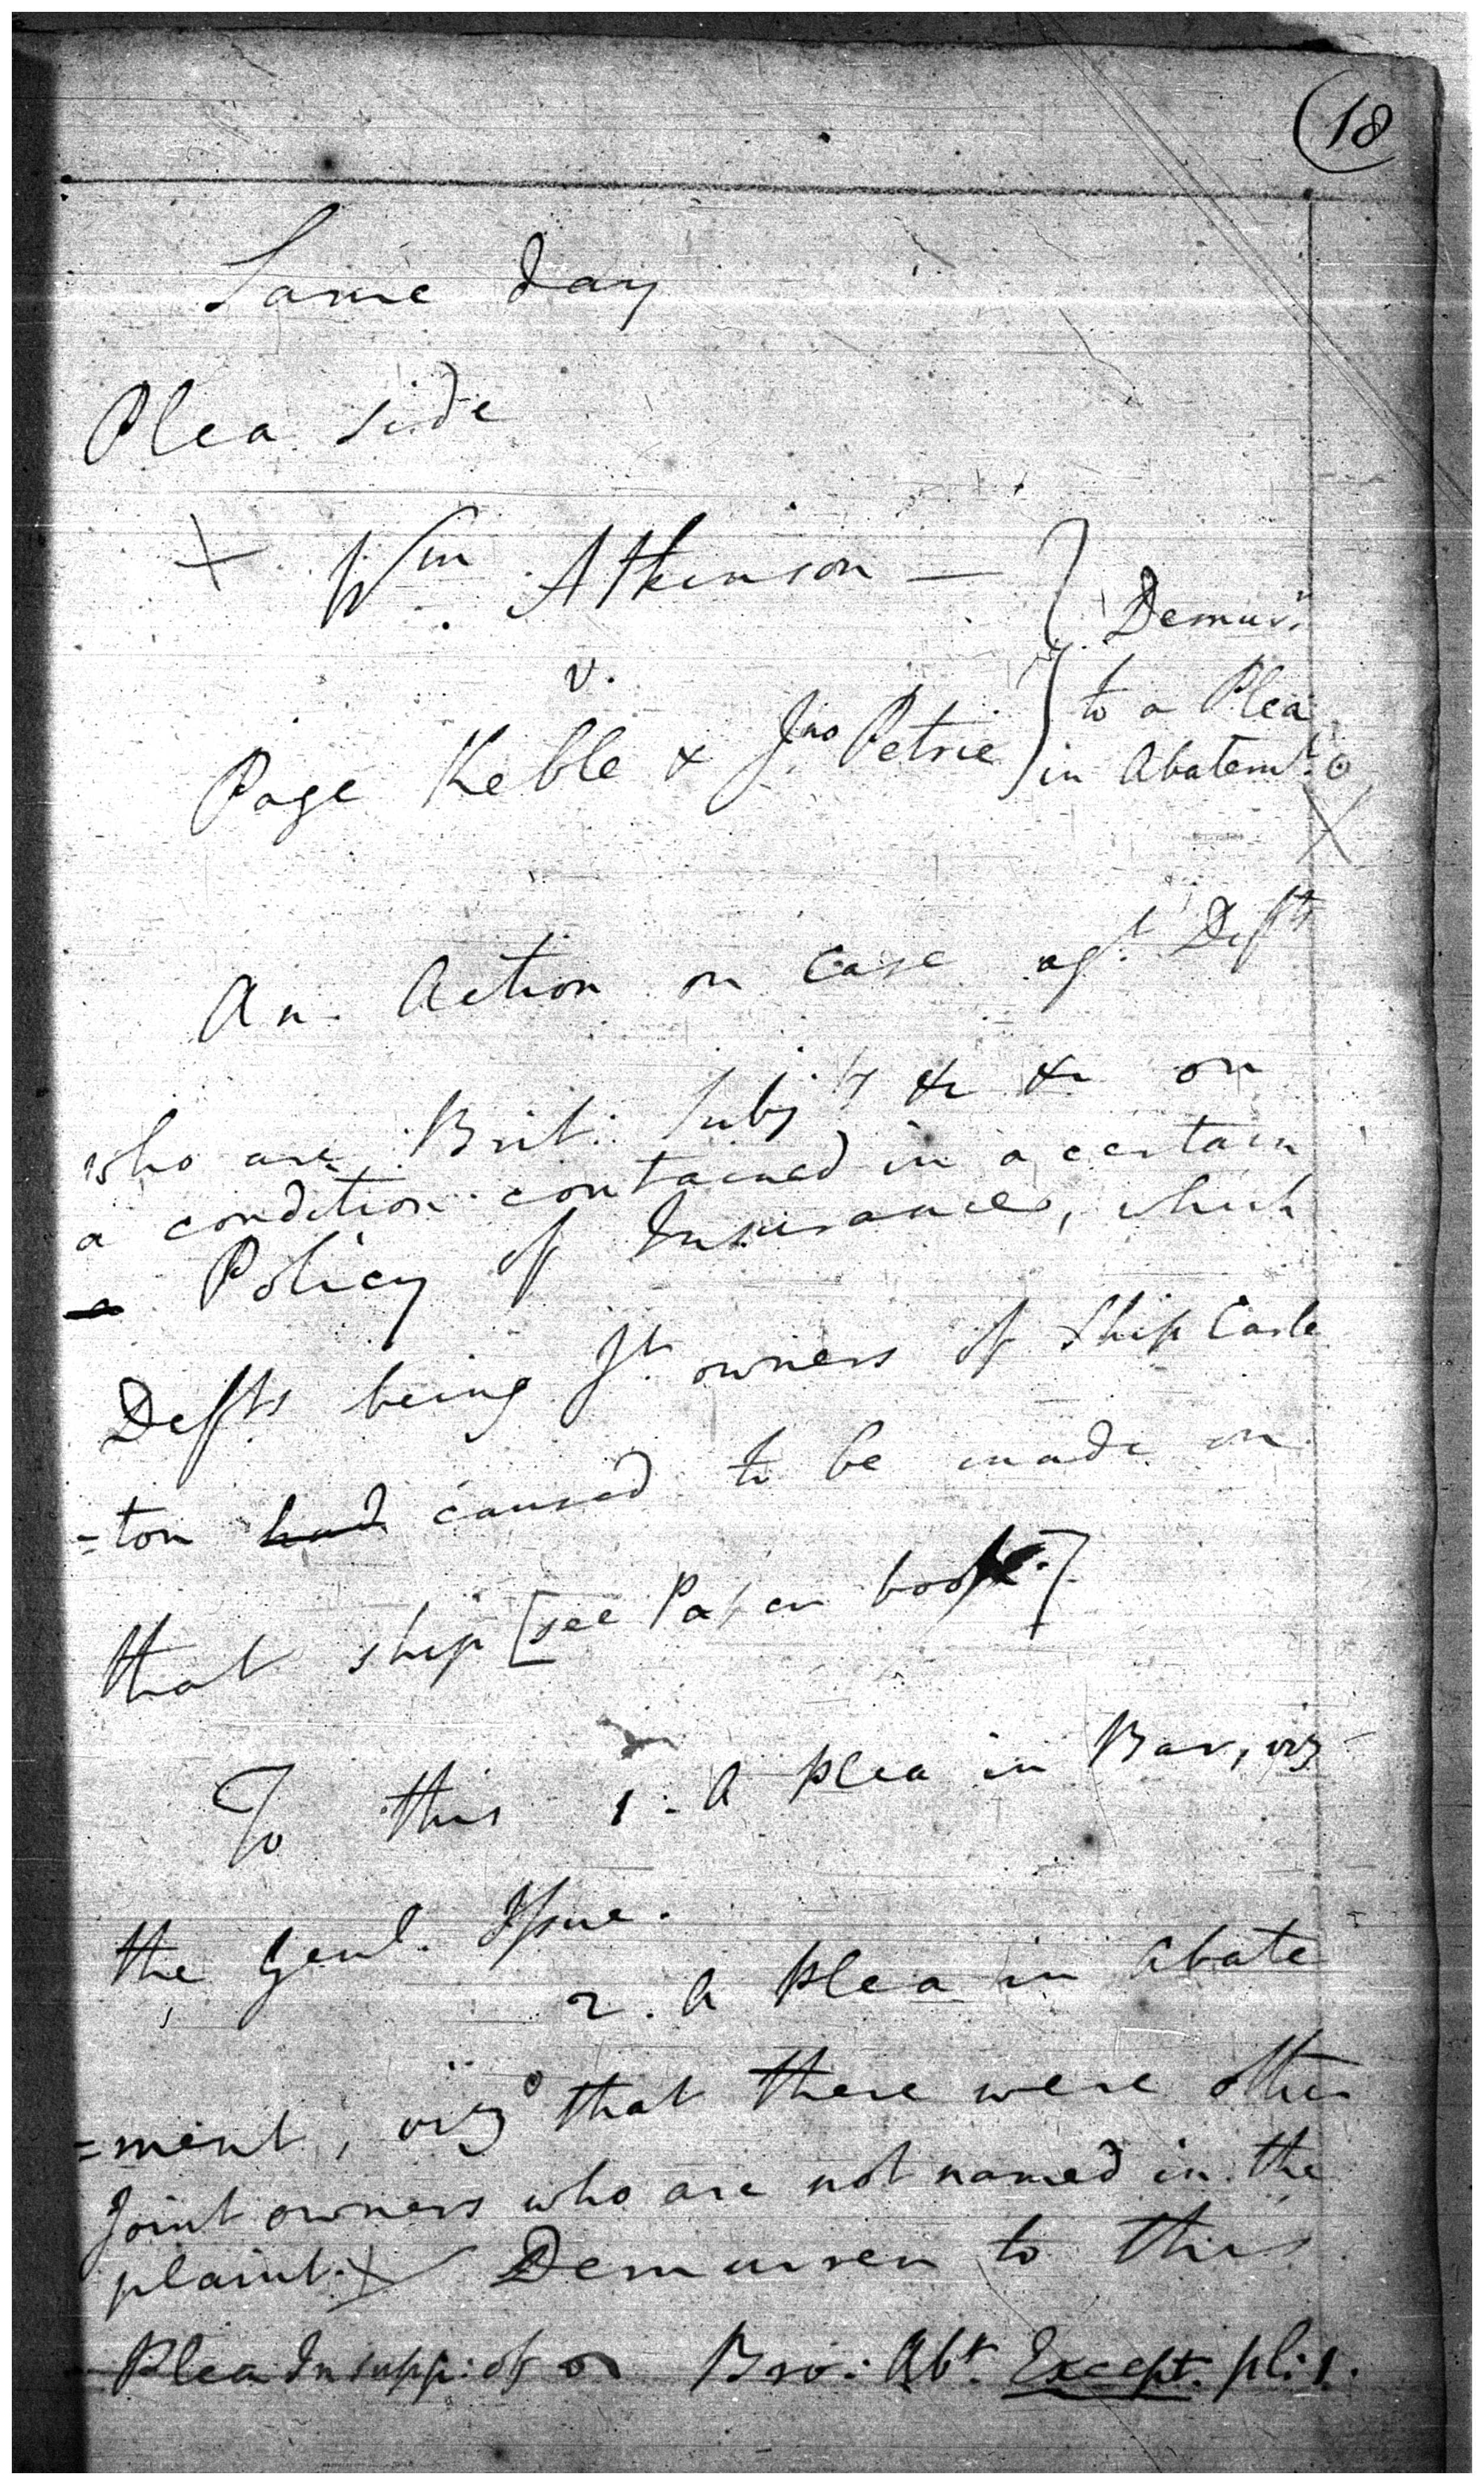 18
Same day
Plea side
+ Wm. Atkinson — Demurr.
v. to a Plea
Page Keble & Jno. Petrie in Abatemt.
An Action on Case agt. Defts
who are Brit. Subjts &c &c on
a condition contained in a certain
a Policy of Insurance, which
Defts being Jt. owners of Ship Carle
=ton had caused to be made on
that ship [see Paper book.]
To this 1. A plea in Bar, viz
the Genl. Issue.
2. A plea in Abate
=ment, vizo that there were other
Joint owners who are not named in the
plaint. X Demurrer to this
Plea In supp: of Bro: Abt. Except. pl: 1.